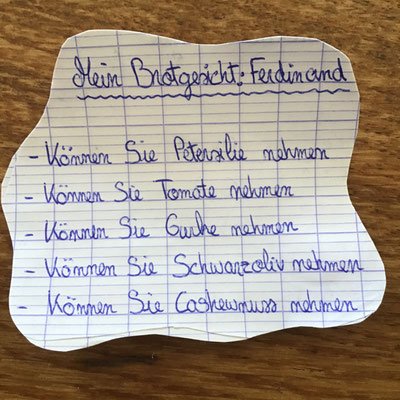 Mein Brotgesicht: Ferdinand
- Können Sie Petersilie nehmen
- Können Sie Tomate nehmen
- Können Sie Gurke nehmen
- Können Sie Schwarzoliv nehmen
- Können Sie Cashewnuss nehmen